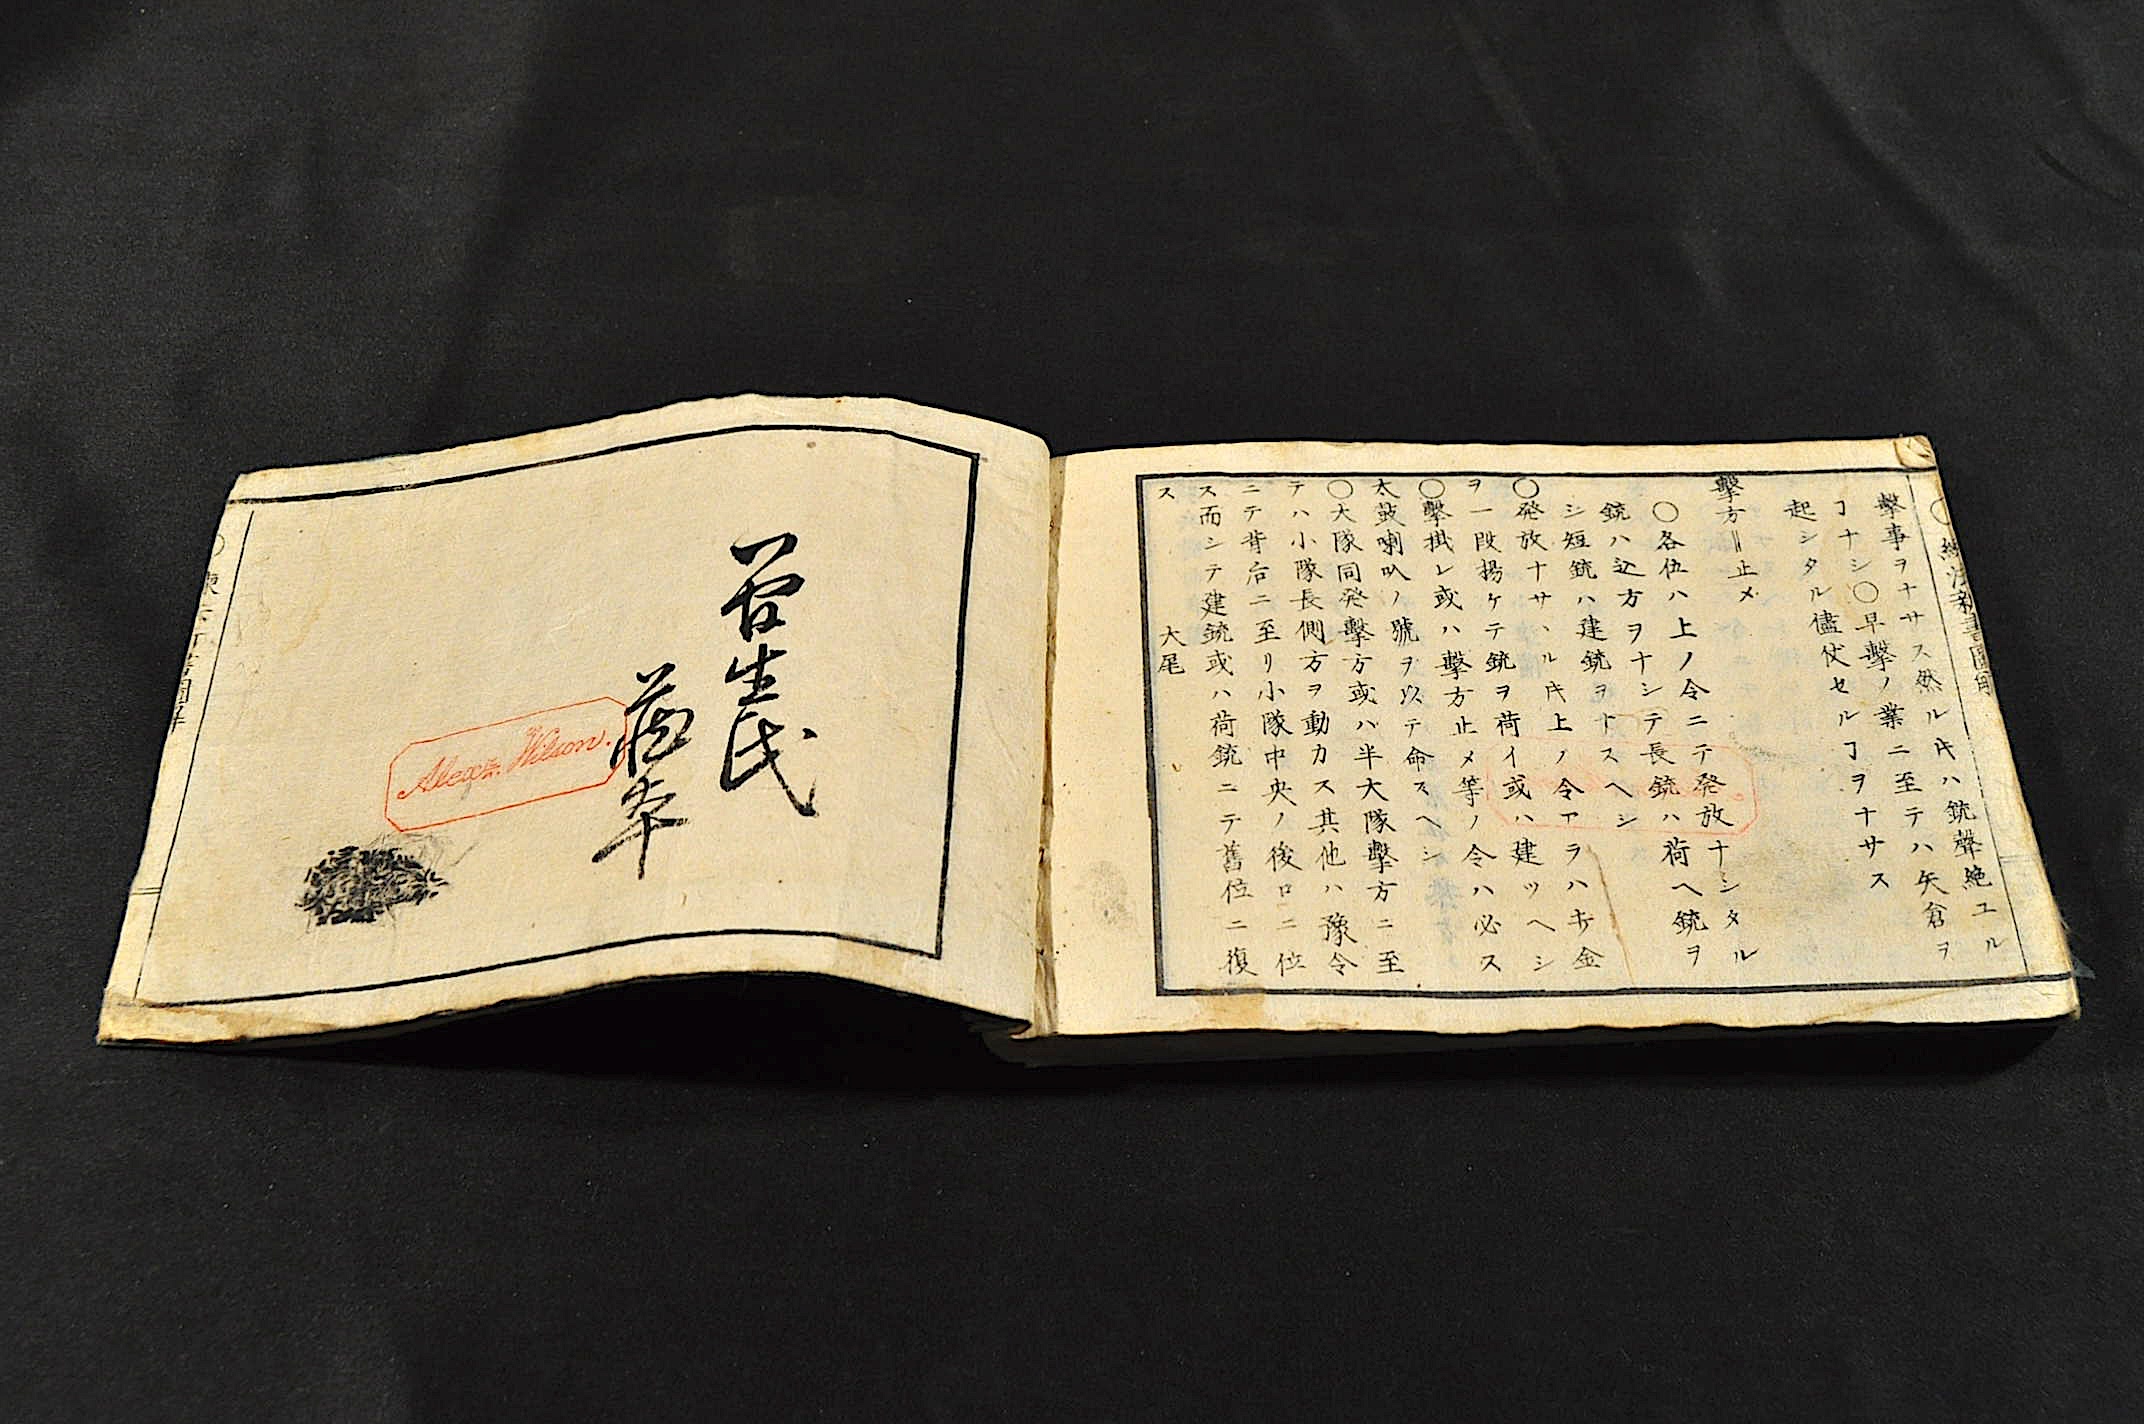 撃事ヲナサス然ルㇳキハ銃聲絶ユル
ヿナシ〇早撃ノ業ニ至テハ矢倉ヲ
起シタル儘伏セルヿヲナサス
撃方‖止メ
〇各伍ハ上ノ令ニテ発放ナシタル
銃ハ込方ヲナシテ長銃ハ荷ヘ銃ヲ
シ短銃ハ建銃ヲトスヘシ
〇発放ナサヽル𪜈上ノ令アラハキ金
ヲ一段揚ケテ銃ヲ荷イ或ハ建ツヘシ
〇撃掛レ或ハ撃方止メ等ノ令ハ必ス
太鼓喇叭ノ號ヲ以テ命スヘシ
〇大隊同発撃方或ハ半大隊撃方ニ至
テハ小隊長側方ヲ動カス其他ハ豫令
ニテ背后ニ至リ小隊中央ノ後口ニ位
ス而シテ建銃或ハ荷銃ニテ舊位ニ復
ス
大尾
生氏
Alexr. Wilson.